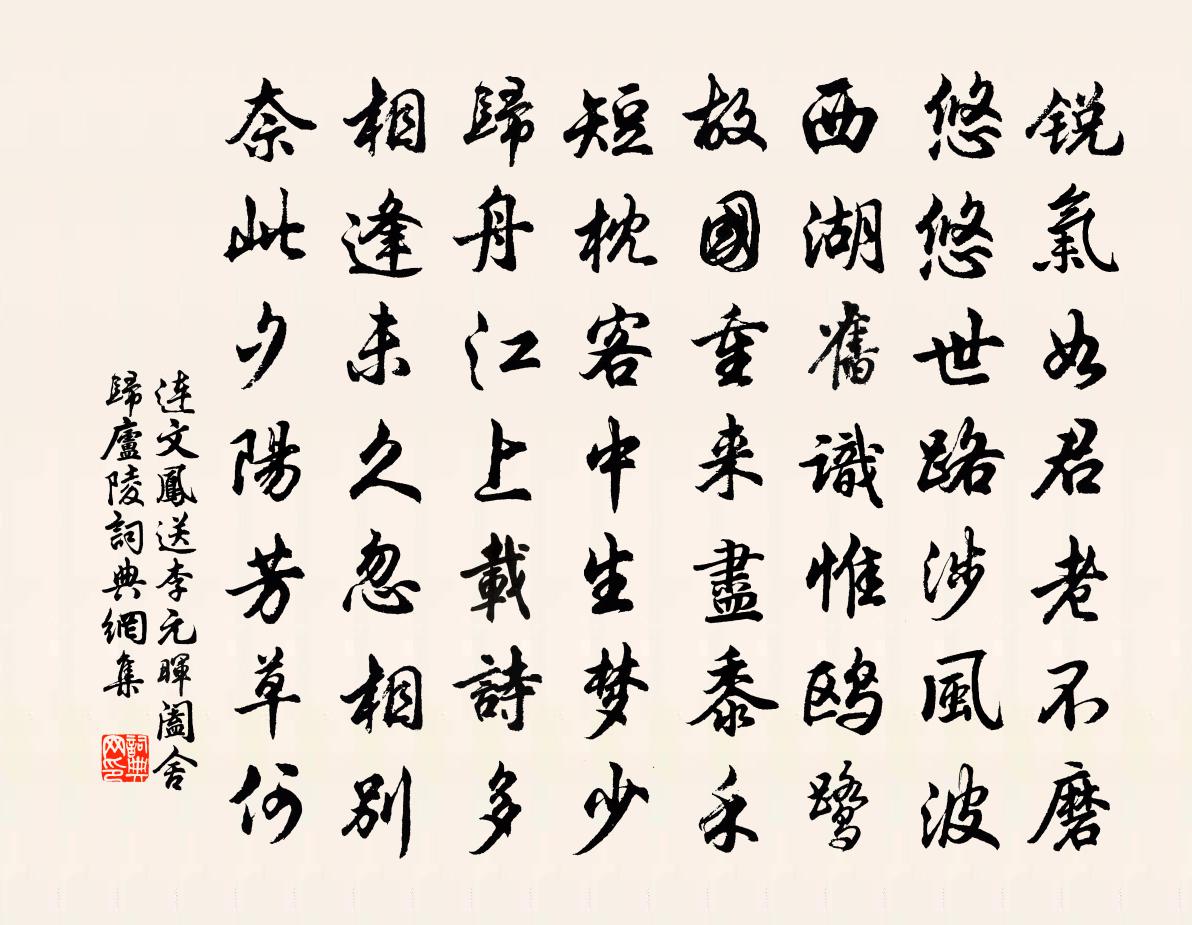 锐氣如君老不磨
悠悠世路涉風波
西湖舊識惟鸥鹭
故國重来盡黍禾
短枕客中生梦少
歸舟江上載詩多
相逢未久忽相别
奈此夕陽芳草何
连文鳳送李元暉阖舍
歸廬陵詞典網集
詞典网印